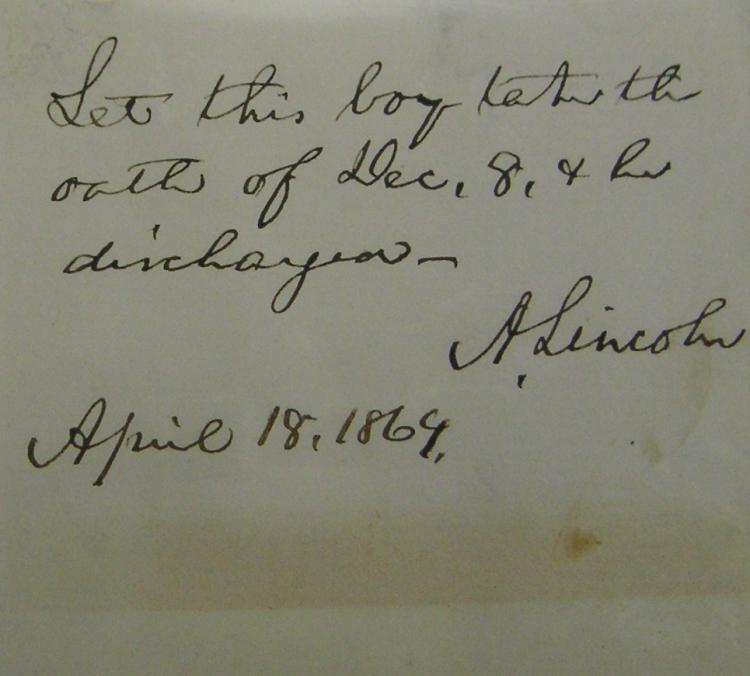 Let this boy take the
oath of Dec. 8, & be
discharged—
A. Lincoln
April 18, 1864.